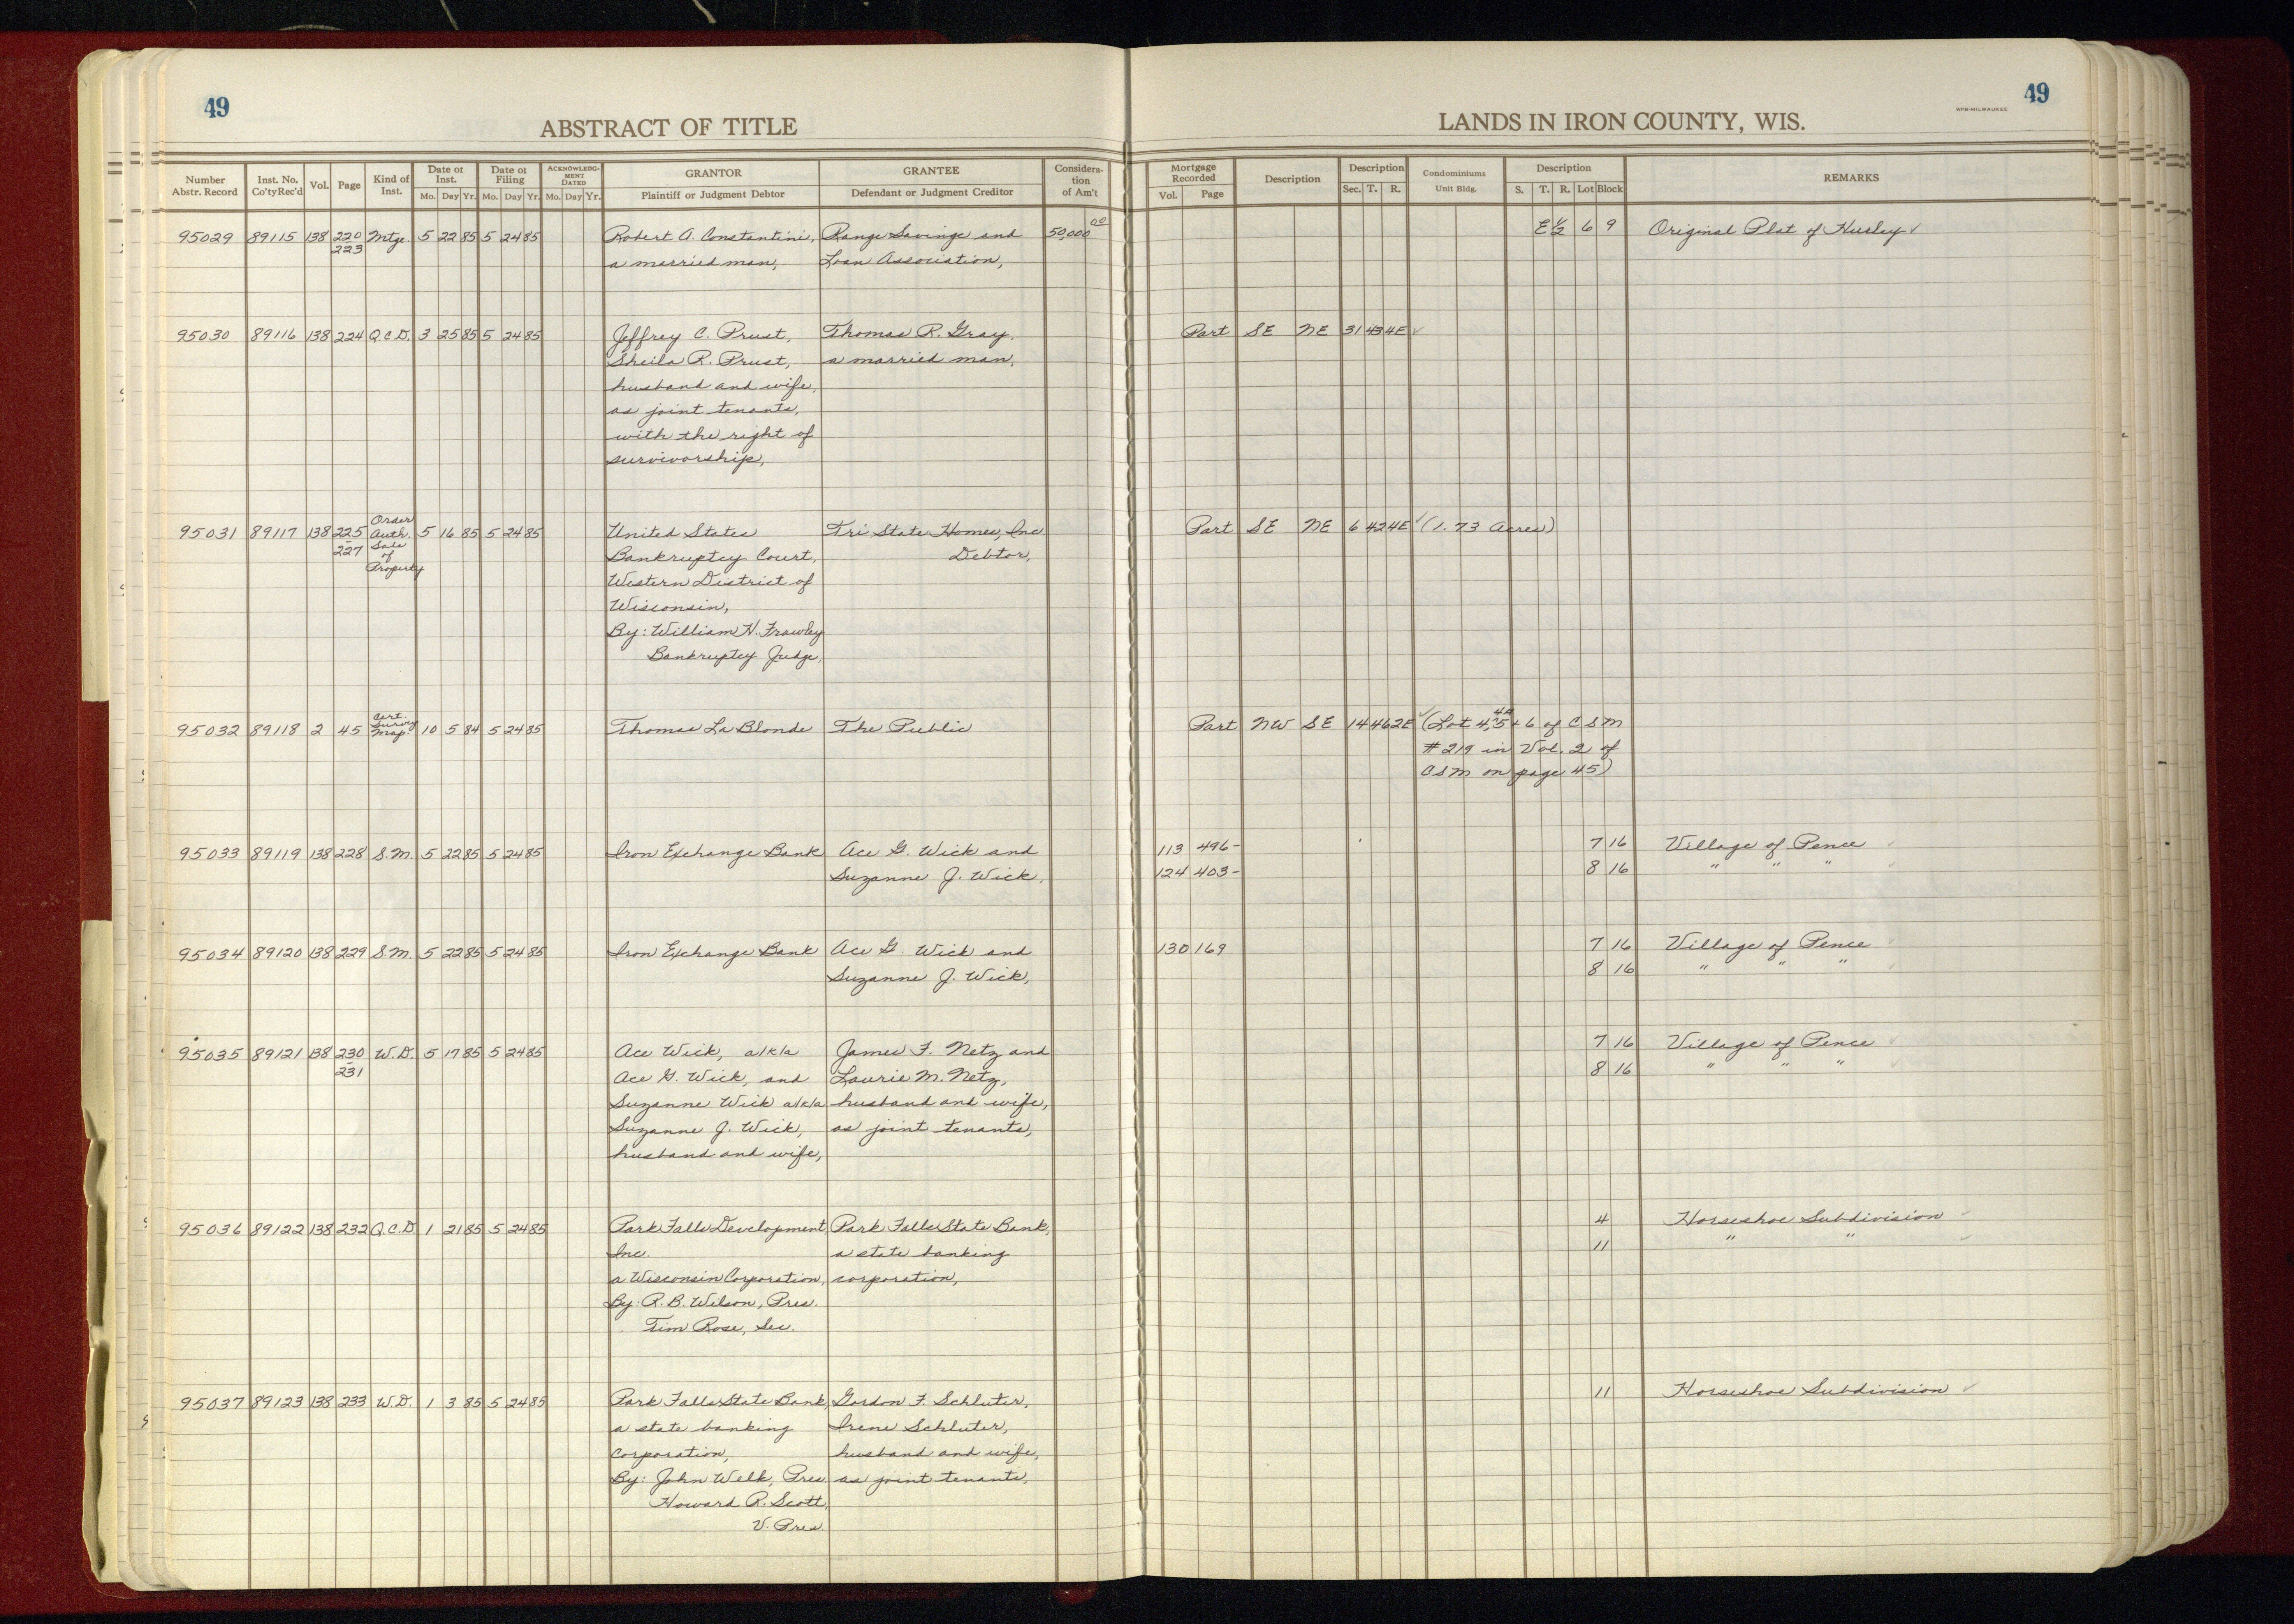 49
ABSTRACT OF TITLE
LANDS IN IRON COUNTY, WIS.
WPB-MILWAUKEE
49
Number Abstr. Record | Inst. No. Co'ty Rec'd | Vol. | Page | Kind of Inst. | Date of Inst. Mo. Day Yr. | Date of Filing Mo. Day Yr. | ACKNOWLEDGMENT DATED Mo. Day Yr. | GRANTOR Plaintiff or Judgment Debtor | GRANTEE Defendant or Judgment Creditor | Consideration of Am't | Mortgage Recorded Vol. Page | Description | Description Sec. T. R. | Condominiums Unit Bldg. | Description S. T. R. Lot Block | REMARKS
95029 89115 138 220 Mtge. 5 22 85 5 24 85 Robert A. Constantini, Range Savings and 50,000 00 E 1/2 6 9 Original Plat of Hurley ✓
223 a married man, Loan Association,
95030 89116 138 224 Q.C.D. 3 25 85 5 24 85 Jeffrey C. Prust, Thomas R. Gray, Part SE NE 31 43 4E ✓
Sheila R. Prust, a married man,
husband and wife,
as joint tenants,
with the right of
survivorship,
Order
95031 89117 138 225 Auth. 5 16 85 5 24 85 United States Tri State Homes, Inc Part SE NE 6 42 4E ✓ (1.73 Acres)
- Sale
227 of Bankruptcy Court, Debtor,
Property Western District of
Wisconsin,
By: William H. Frawley
Bankruptcy Judge,
Cert.
Survey
95032 89118 2 45 Map 10 5 84 5 24 85 Thomas La Blonde The Public Part NW SE 14 46 2E ✓ (Lot 4, 5 + 6 of C S M
#219 in Vol. 2 of
CSM on page 45)
95033 89119 138 228 S.M. 5 22 85 5 24 85 Iron Exchange Bank Ace G. Wick and 113 496- 7 16 Village of Pence ✓
Suzanne J. Wick, 124 403- 8 16 " " " ✓
95034 89120 138 229 S.M. 5 22 85 5 24 85 Iron Exchange Bank Ace G. Wick and 130 169 7 16 Village of Pence ✓
Suzanne J. Wick, 8 16 " " " ✓
95035 89121 138 230 W.D. 5 17 85 5 24 85 Ace Wick, a/k/a James F. Netz and 7 16 Village of Pence ✓
231 Ace G. Wick, and Laurie M. Netz, 8 16 " " " ✓
Suzanne Wick a/k/a husband and wife,
Suzanne J. Wick, as joint tenants,
husband and wife,
95036 89122 138 232 Q.C.D. 1 21 85 5 24 85 Park Falls Development, Park Falls State Bank, 4 Horseshoe Subdivision ✓
Inc. a state banking 11 " " ✓
a Wisconsin Corporation, corporation,
By: R. B. Wilson, Pres.
Tim Rose, Sec.
95037 89123 138 233 W.D. 1 3 85 5 24 85 Park Falls State Bank, Gordon F. Schluter, 11 Horseshoe Subdivision ✓
a state banking Irene Schluter,
corporation, husband and wife,
By: John Welk, Pres as joint tenants,
Howard R. Scott,
V. Pres.